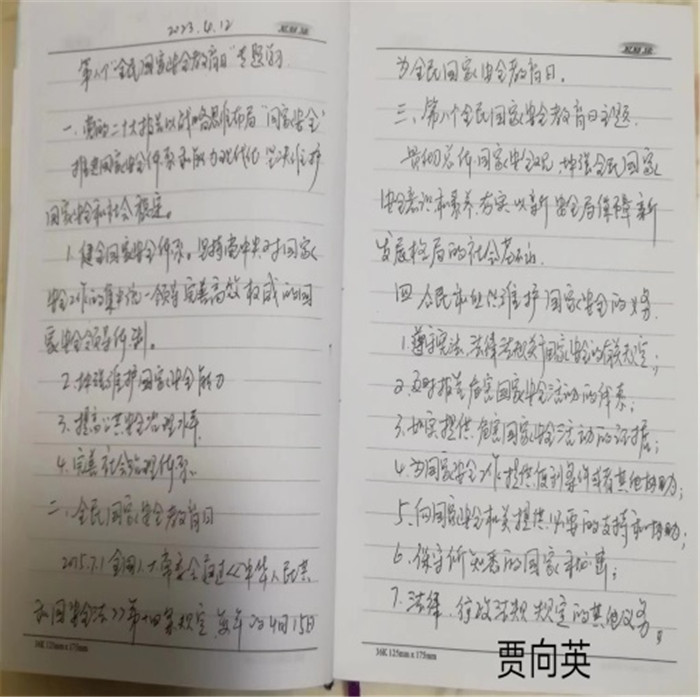 2023.4.12
第八个"全民国家安全教育日"专题学习
一、党的二十大报告以战略思维布局"国家安全"
推进国家安全体系和能力现代化 坚决维护
国家安全和社会稳定。
1.健全国家安全体系。坚持党中央对国家
安全工作的集中统一领导完善高效权威的国
家安全领导体制。
2.增强维护国家安全能力
3.提高公共安全治理水平
4.完善社会治理体系。
二、全民国家安全教育日
2015.7.1 全国人大常委会通过《中华人民共
和国国安全法》第十四条规定,每年的4月15日
36K 125mm x 175mm
为全民国家安全教育日。
三、第八个全民国家安全教育日主题
贯彻总体国家安全观,增强全民国家
安全意识和素养,夯实以新安全格局保障新
发展格局的社会基础
四、公民和组织维护国家安全的义务
1.遵守宪法、法律法规关于国家安全的有关规定;
2.及时报告危害国家安全活动的线索;
3.如实提供危害国家安全活动的证据;
4.为国家安全工作提供便利条件或者其他协助;
5.向国家安全机关提供必要的支持和协助;
6.保守所知悉的国家秘密;
7.法律、行政法规规定的其他义务。
36K 125mm x 175mm
贾向英